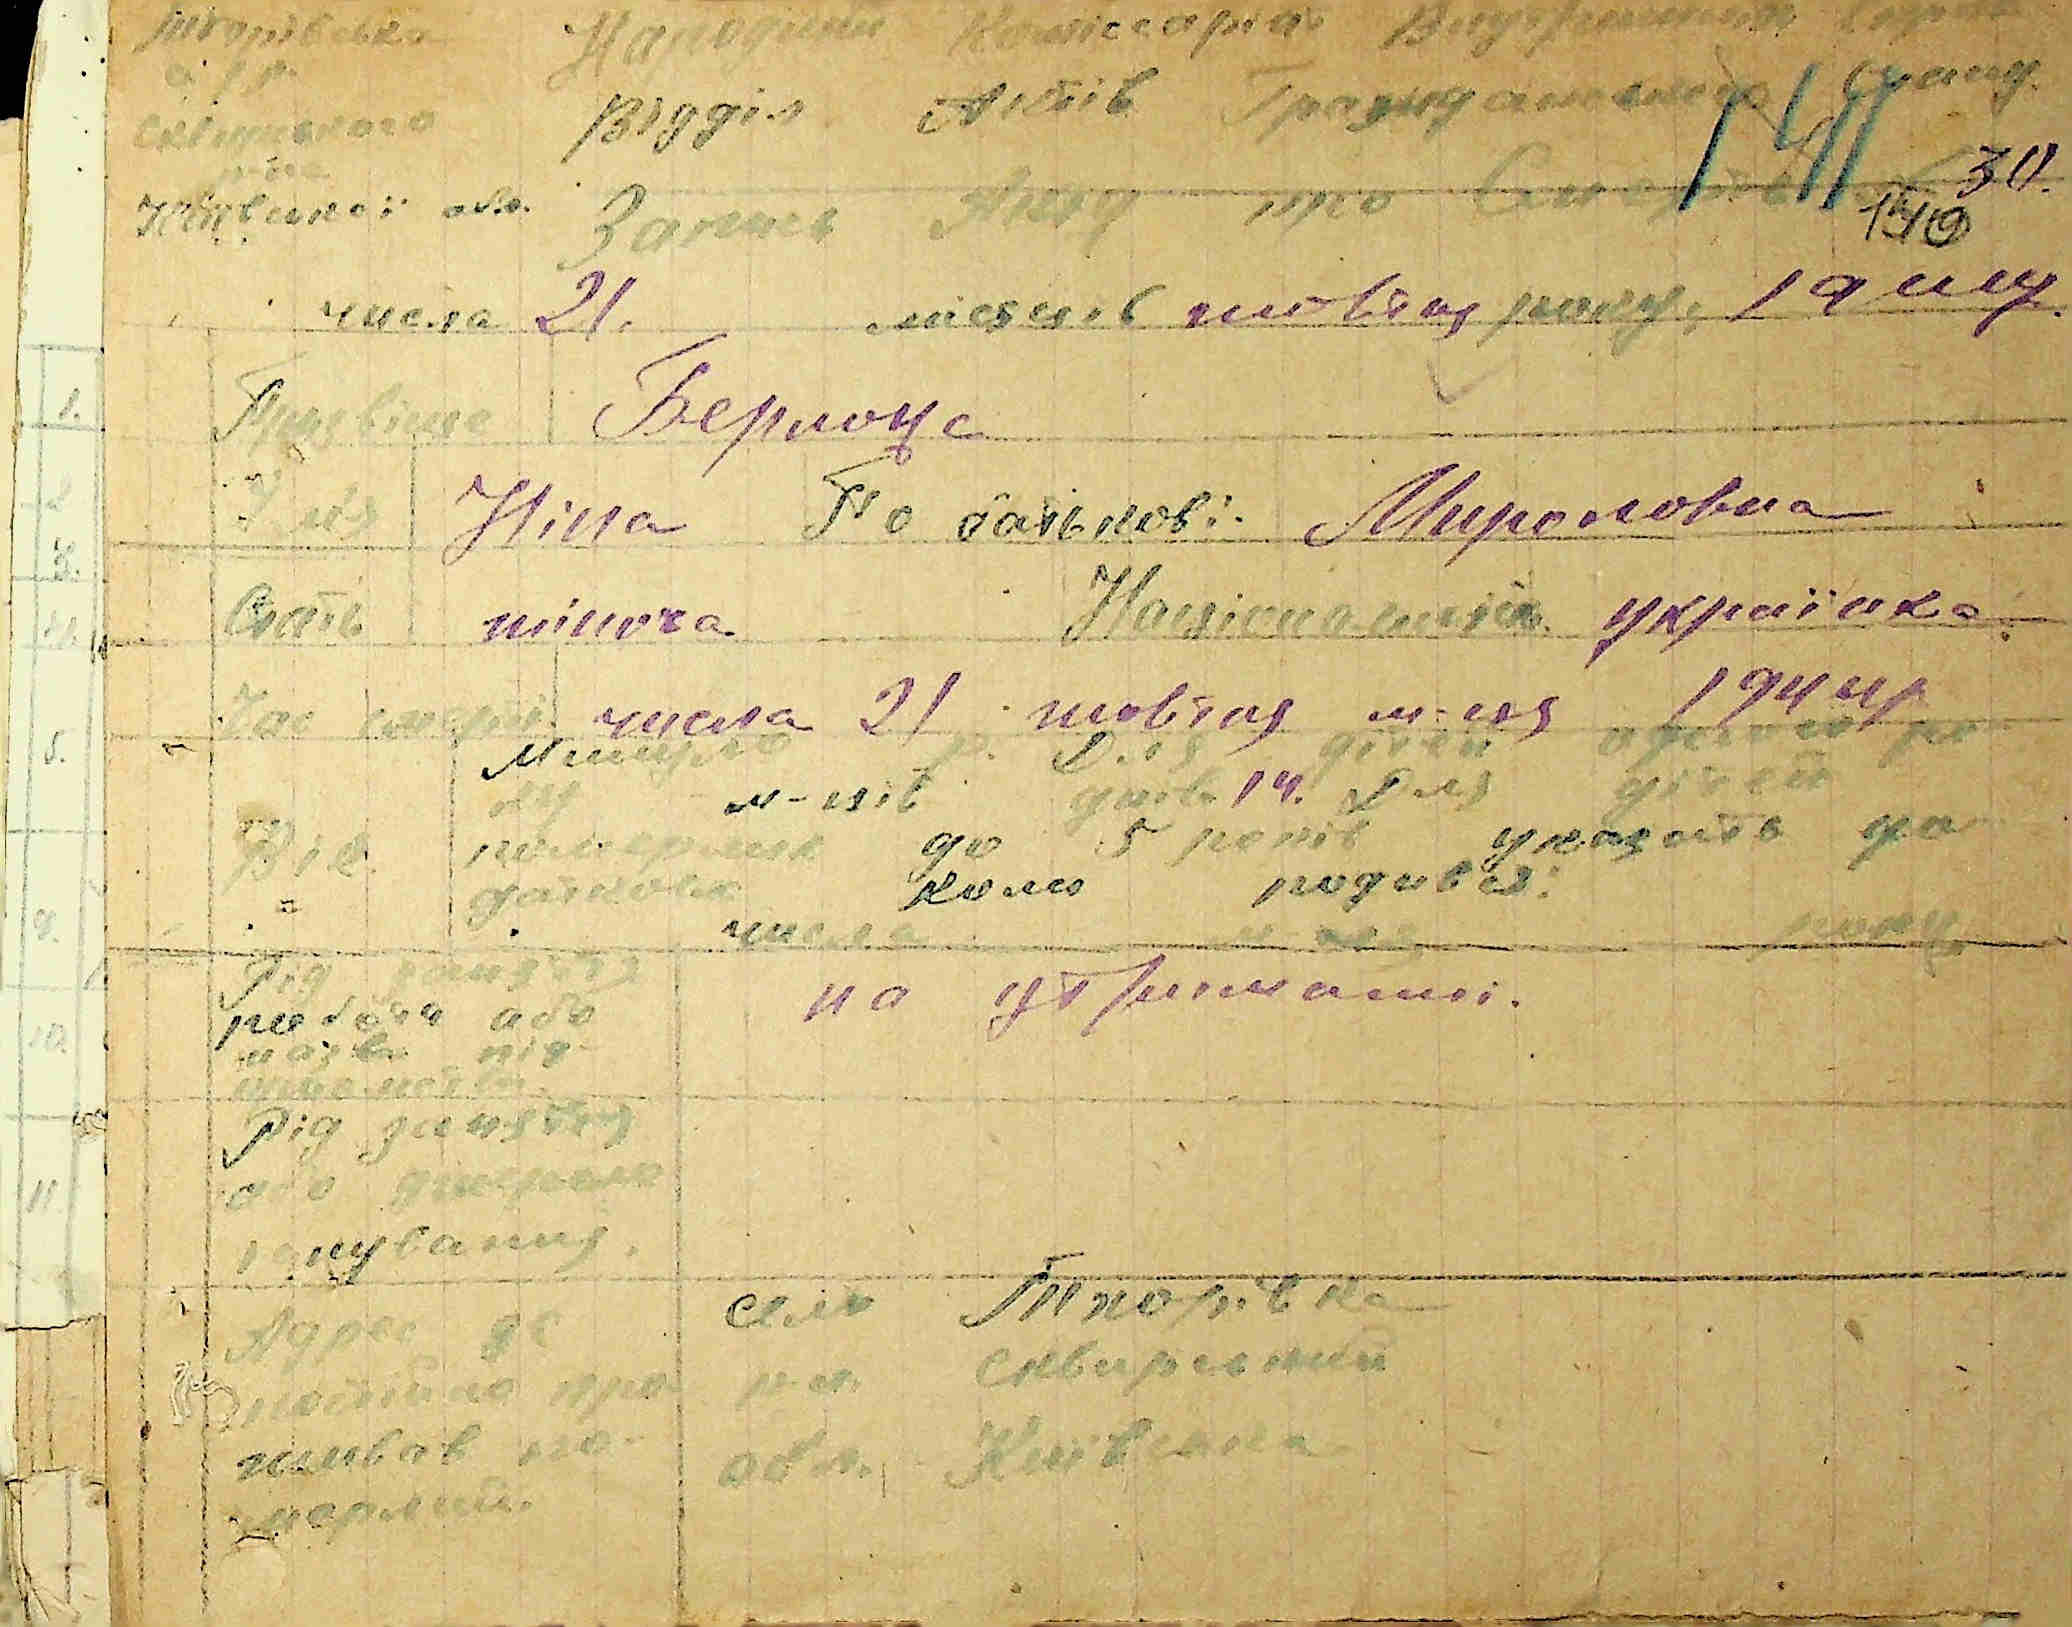 Токарівська
с/р
Сквирського
р-на
Київської обл.
Народний Комісаріат Внутрішніх Справ
Відділ Актів Громадянського Стану.
Запис Акту про Смерть 30.
141
140
числа 21. місяців жовтня року, 1944
Прізвіще Берлоце
І'мя Ніна По батькові: Мироновна
Стать жіноча Національність українка
Час смерті числа 21 жовтня м-ця 1944 р
Минуло р. Для дітей одного ро-
ку м-ців днів 14. Для дітей
Вік померлих до 5 років указать до
датково коли родився:
числа м-ця року
Рід заняття
роботи або
назва під-
на утриманні.
Рід заняття
або джерело
існування.
Адрес де
постійно про-
живав по-
мерлий.
село Токарівка
р-н. Сквирський
обл. Київська
1.
2.
3.
4.
5.
9.
10.
11.